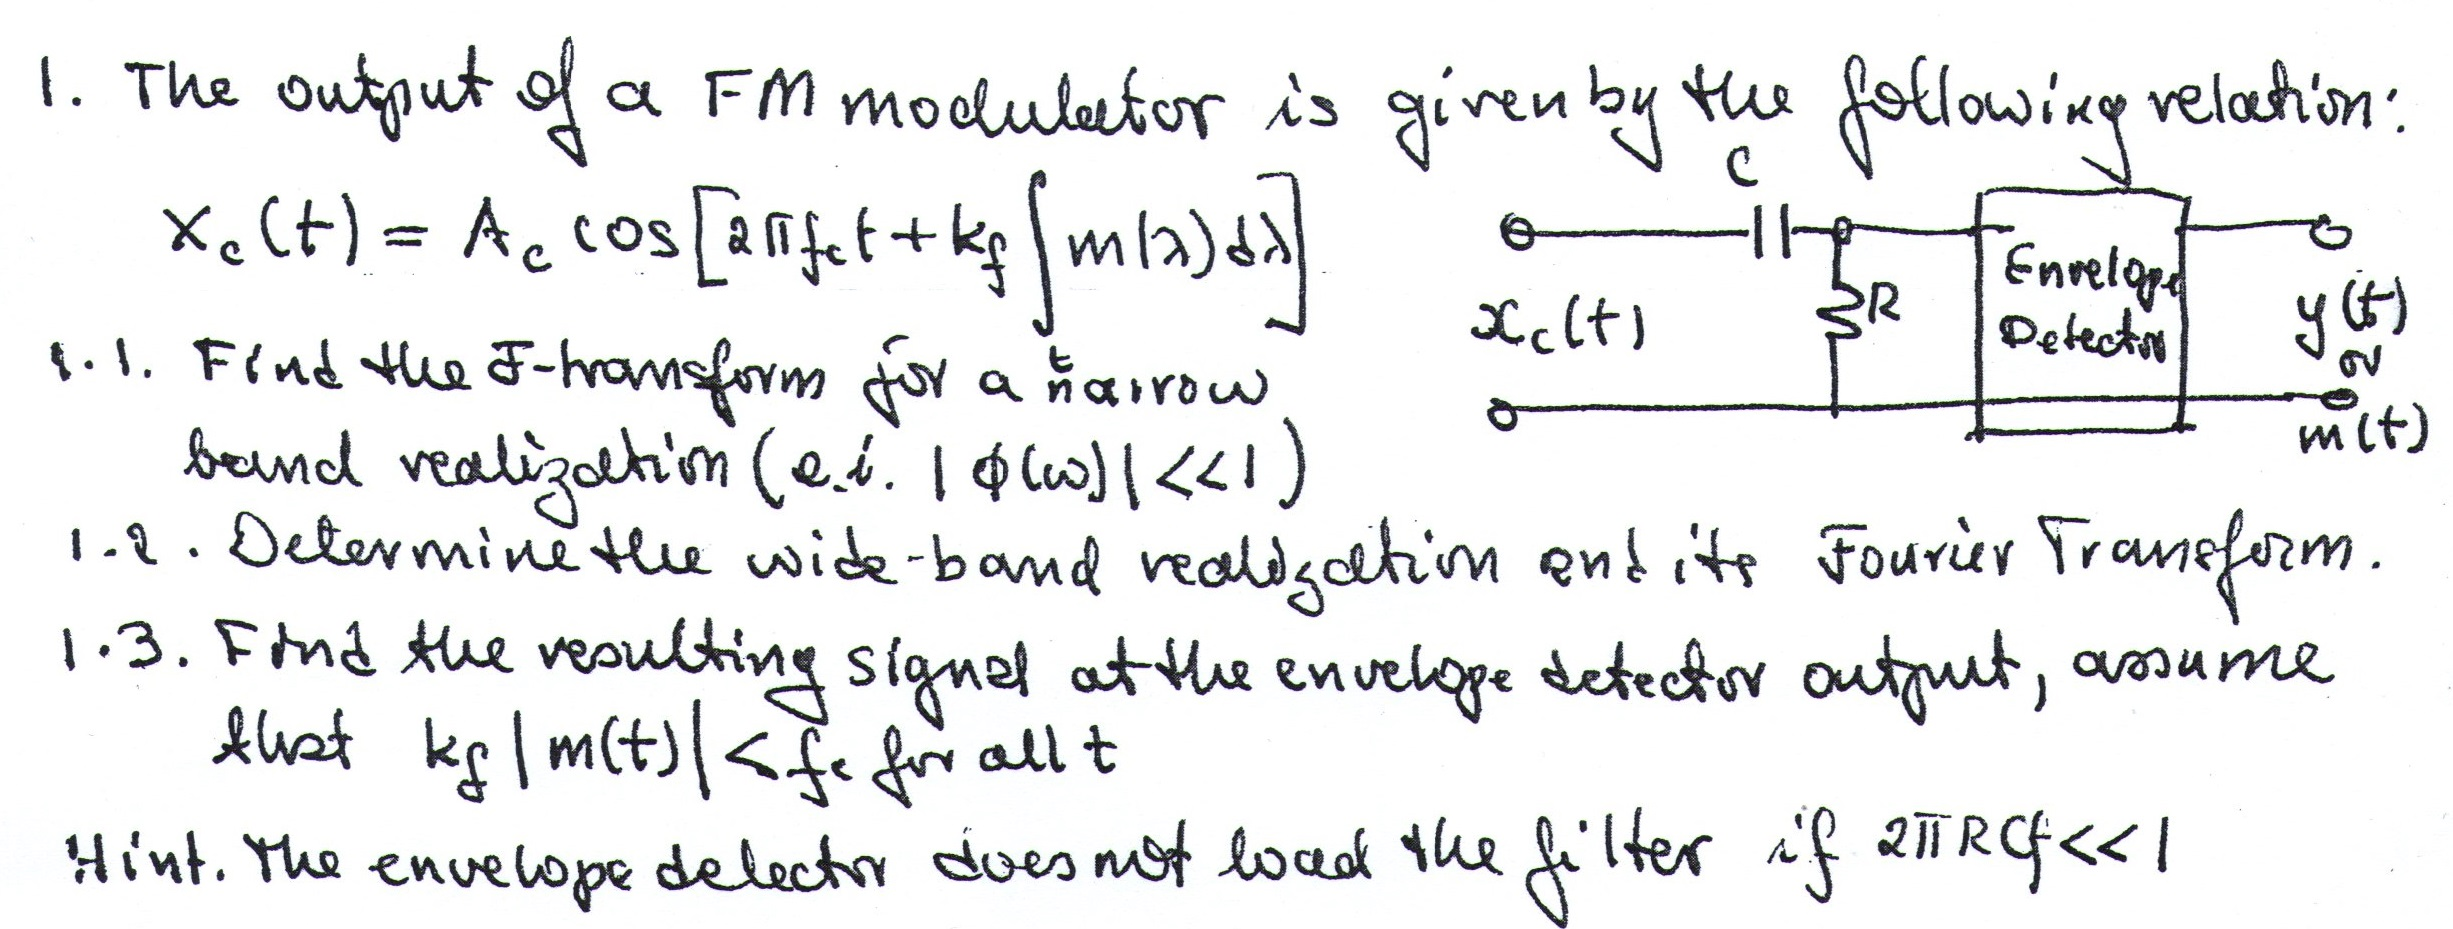 1. The output of a FM modulator is given by the following relation:
x_c(t) = A_c cos[2πf_ct + k_f ∫^t m(λ)dλ]
C
R
x_c(t)
Envelope
Detector
y(t)
or
m(t)
1.1. Find the F-transform for a narrow
band realization (e.i. |ϕ(ω)| <<1)
1.2. Determine the wide-band realization and its Fourier Transform.
1.3. Find the resulting signal at the envelope detector output, assume
that k_f |m(t)| < f_c for all t
Hint. The envelope detector does not load the filter if 2πRCf<<1